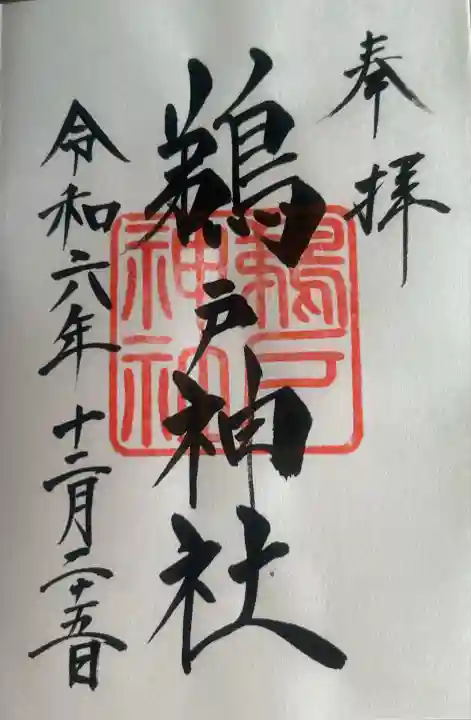 奉拝
鵜戸神社
鵜戸
神社
令和六年十二月二十五日